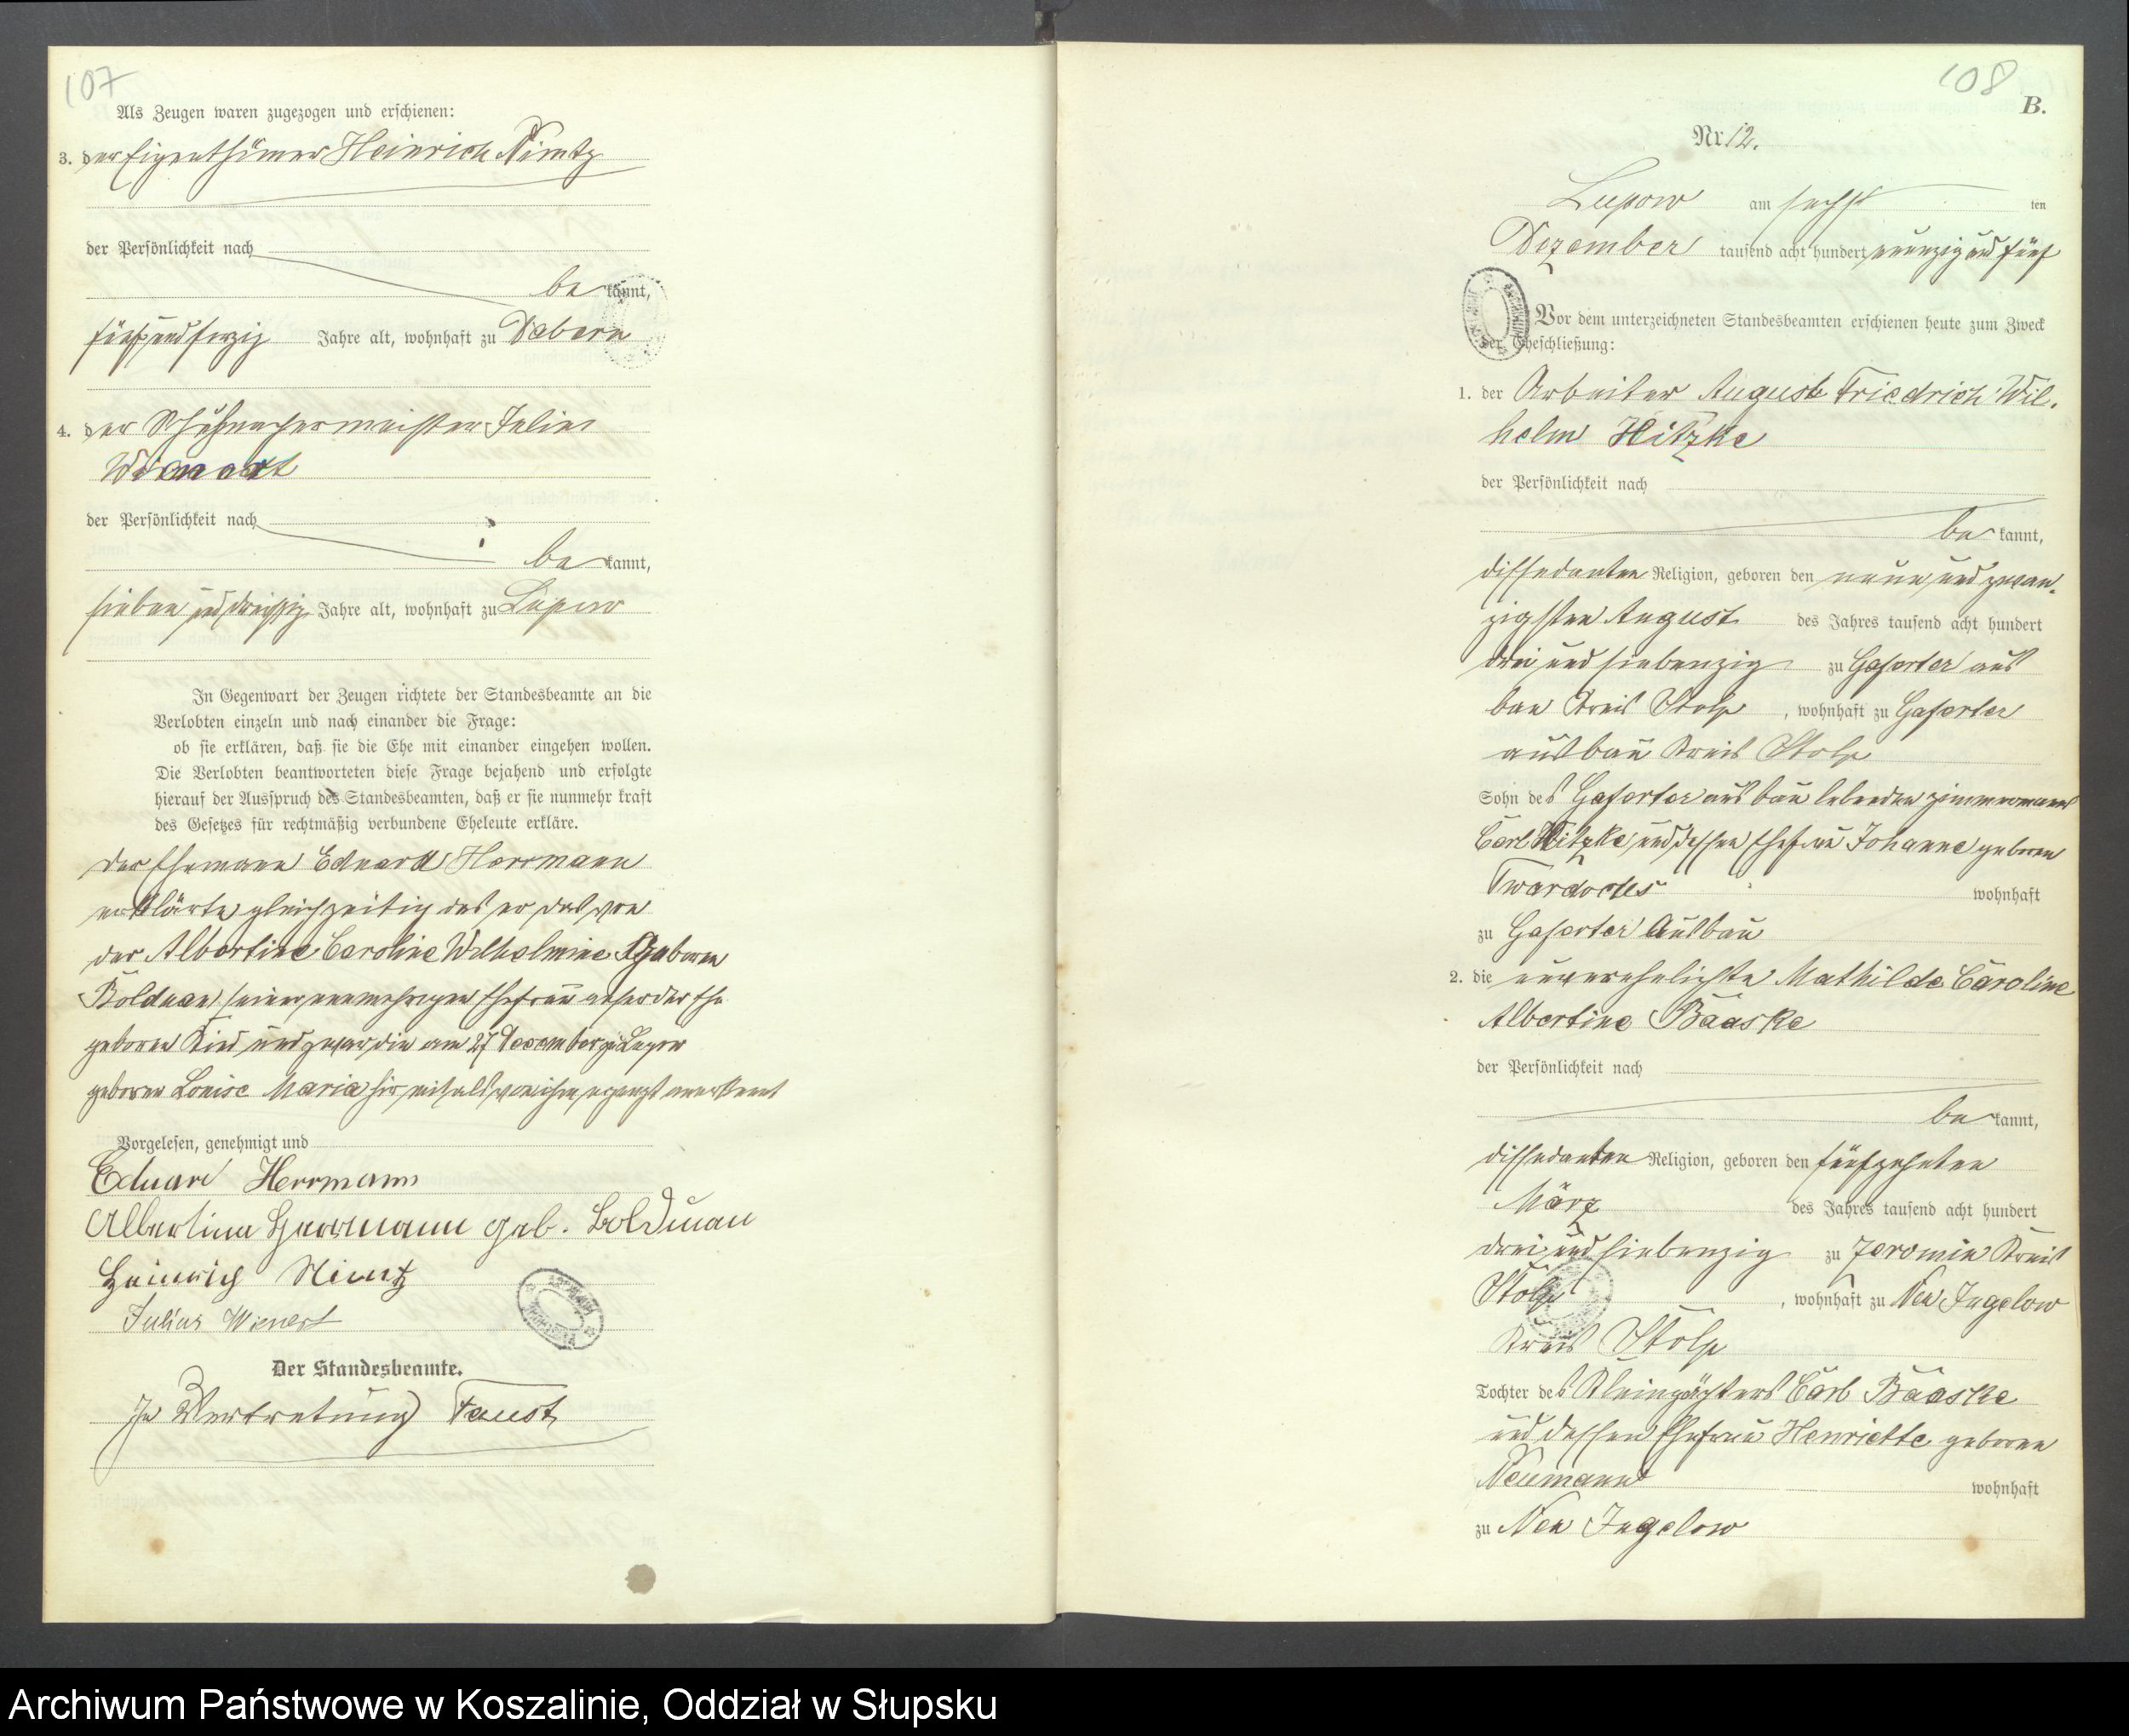 107
Als Zeugen waren zugezogen und erschienen:
3. der Eigenthümer Heinrich Nimtz
der Persönlichkeit nach
be kannt,
fünf und vierzig Jahre alt, wohnhaft zu Dabern
4. der Schuhmachermeister Julius
Wienert
der Persönlichkeit nach
be kannt,
sieben und dreißig Jahre alt, wohnhaft zu Lupow
In Gegenwart der Zeugen richtete der Standesbeamte an die
Verlobten einzeln und nach einander die Frage:
ob sie erklären, daß sie die Ehe mit einander eingehen wollen.
Die Verlobten beantworteten diese Frage bejahend und erfolgte
hierauf der Ausspruch des Standesbeamten, daß er sie nunmehr kraft
des Gesetzes für rechtmäßig verbundene Eheleute erkläre.
der Ehemann Eduard Herrmann
erklärte gleichzeitig das er das von
der Albertine Caroline Wilhelmine geboren
Bolduan seiner nunmehrigen Ehefrau außer der Ehe
geboren Kind und zwar die am 27 Dezember zu Lupow
geboren Louise Maria hier mit als von ihm erzeugt anerkennt
Vorgelesen, genehmigt und
Eduard Herrmann
Albertine Herrmann geb. Bolduan
Heinrich Nimtz
Julius Wienert
Der Standesbeamte.
In Vertretung Faust
108
B.
Nr. 12.
Lupow am sechs ten
Dezember tausend acht hundert neunzig und fünf
Vor dem unterzeichneten Standesbeamten erschienen heute zum Zweck
der Eheschließung:
1. der Arbeiter August Friedrich Wil-
helm Hitzke
der Persönlichkeit nach
be kannt,
dissedenten Religion, geboren den neun und zwan-
zigsten August des Jahres tausend acht hundert
drei und siebenzig zu Gaferter aus
bau Kreis Stolp, wohnhaft zu Gaferter
ausbau Kreis Stolp
Sohn des Gaferter ausbau lebenden Zimmermanns
Carl Hitzke und dessen Ehefrau Johanne geboren
wohnhaft
zu Gaferter Ausbau
2. die unverehelichte Mathilde Caroline
Albertine Baaske
der Persönlichkeit nach
be kannt,
dissedenten Religion, geboren den fünfzehnten
März des Jahres tausend acht hundert
drei und siebenzig zu Jeromin Kreis
Stolp, wohnhaft zu Neu Jugelow
Kreis Stolp
Tochter des Kleinpächters Carl Baaske
und dessen Ehefrau Henriette geboren
Neumann wohnhaft
zu Neu Jugelow
Archiwum Państwowe w Koszalinie, Oddział w Słupsku